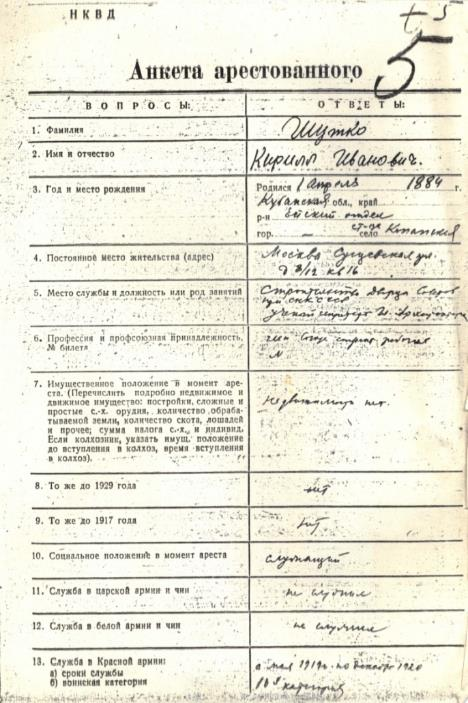 НКВД
+ 5
5
Анкета арестованного
ВОПРОСЫ:
ОТВЕТЫ:
1. Фамилия
Шутко
2. Имя и отчество
Кирилл Иванович.
3. Год и место рождения
Родился 1 апреля 1884 г.
Кубанская обл., край
р-н Ейский отдел
гор. — село
4. Постоянное место жительства (адрес)
Москва Сущевская ул.
кв 16
5. Место службы и должность или род занятий
Строительство Дворца Советов
СНК СССР
ученый
6. Профессия и профсоюзная принадлежность, № билета
член Союза строит. рабочих
N
7. Имущественное положение в момент аре-
ста. (Перечислить подробно недвижимое и
движимое имущество: постройки, сложные и
простые с.-х. орудия, количество обраба-
тываемой земли, количество скота, лошадей
и прочее; сумма налога с.-х. и индивид.
Если колхозник, указать имущ. положение
до вступления в колхоз, время вступления
в колхоз).
Недвижимости нет.
8. То же до 1929 года
нет
9. То же до 1917 года
нет
10. Социальное положение в момент ареста
служащий
11. Служба в царской армии и чин
не служил
12. Служба в белой армии и чин
не служил
13. Служба в Красной армии:
а) сроки службы
с мая 1919 г. по декабрь 1920
б) воинская категория
категория